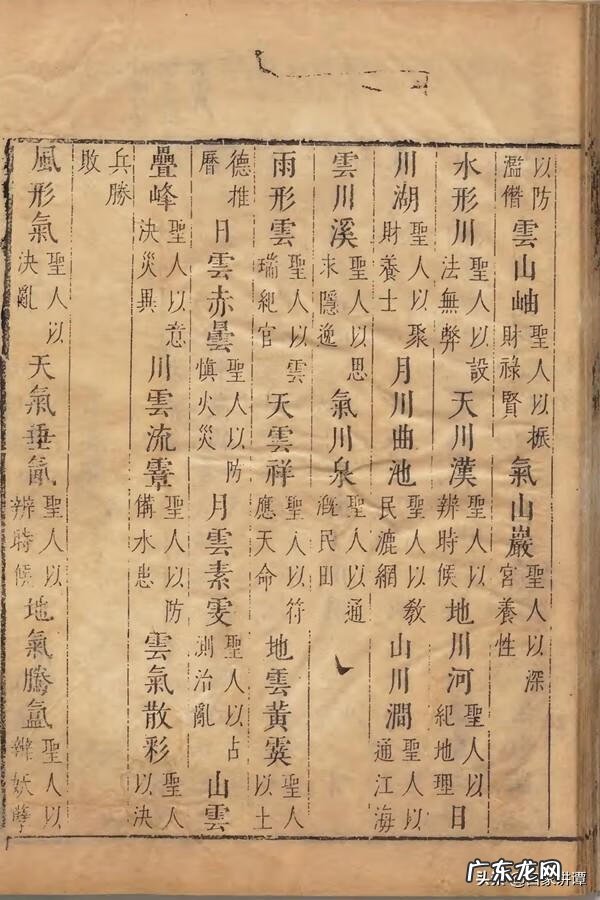 以防濫僭雲山岫聖人以振財祿賢氣山巖聖人以深宮養性
水形川聖人以設法無弊天川漢聖人以辨時候地川河聖人以紀地理日
川湖聖人以聚財養士月川曲池聖人以教民漉網山川澗聖人以通江海
雲川溪聖人以思求隱逸氣川泉聖人以通溉民田
雨形雲聖人以雲瑞紀官天雲祥聖人以符應天命地雲黃霙聖人以土
德推曆日雲赤曇聖人以防慎火災月雲素雯聖人以占測治亂山雲
疊峰聖人以意決災異川雲流聖人以防備水患雲氣散彩聖人以決
兵勝敗
風形氣聖人以決亂天氣垂氤聖人以辨時候地氣騰氳聖人以辨妖孽
广东龙网